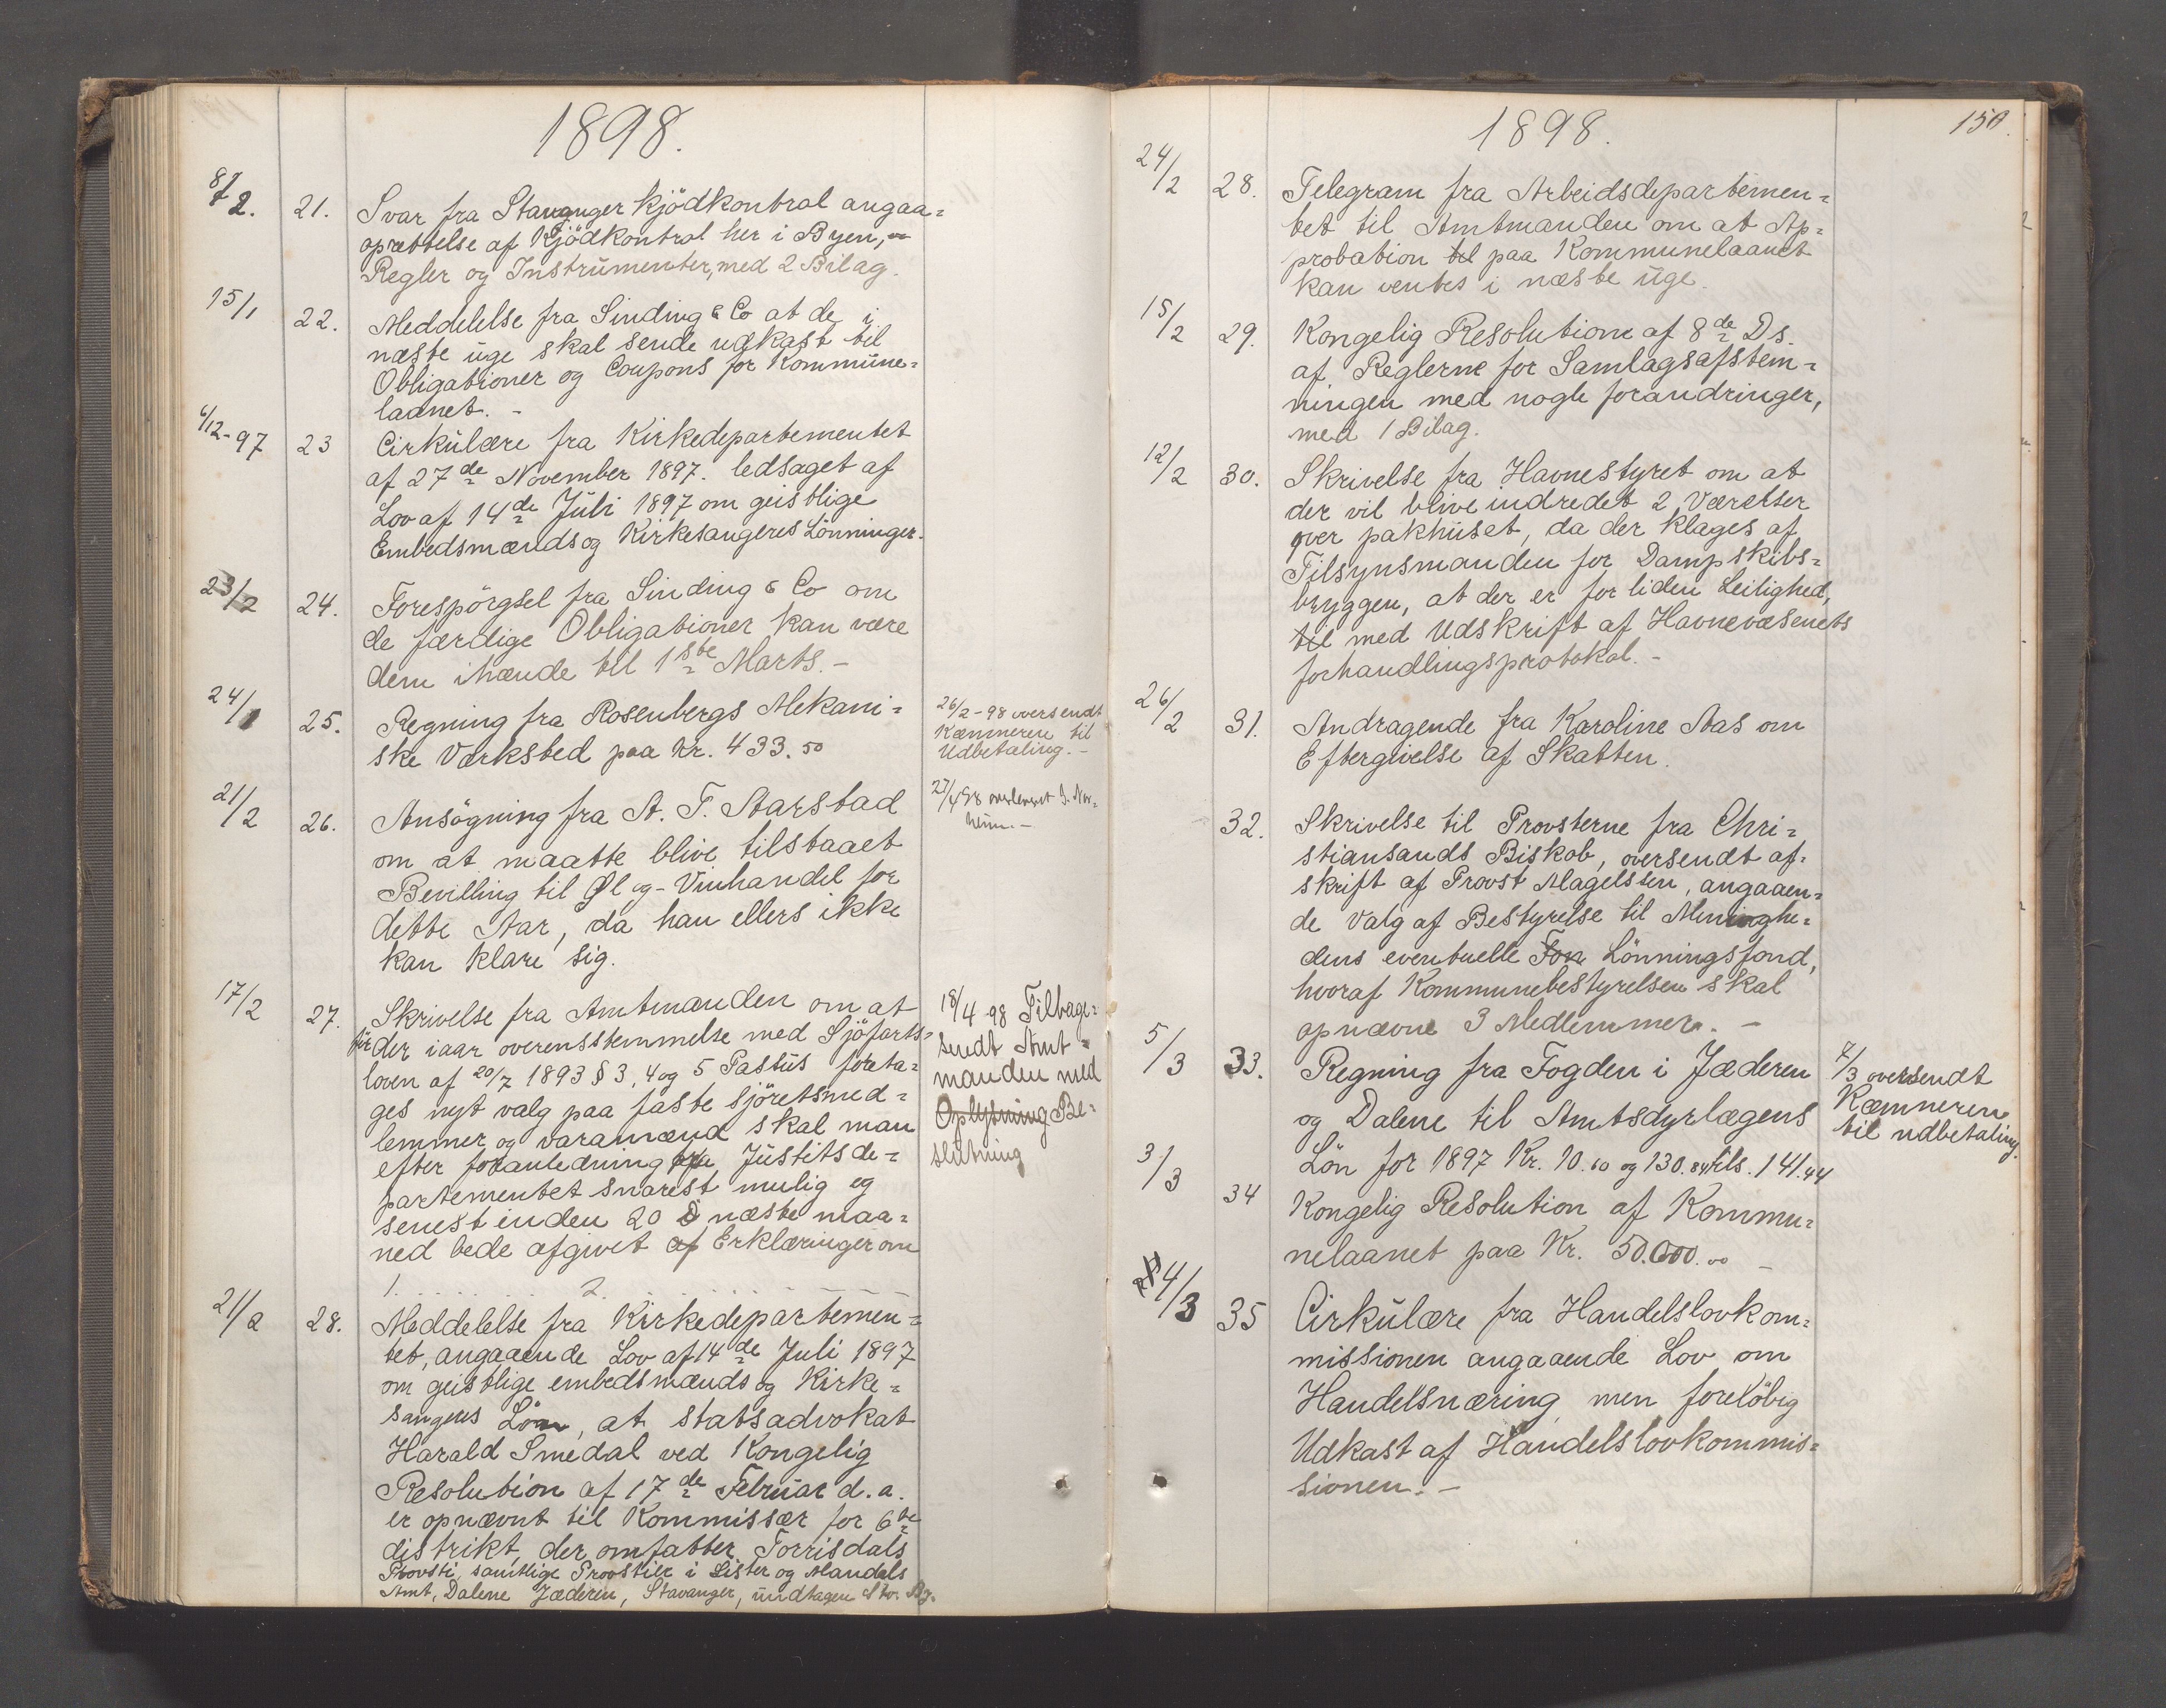 1898.
8/2. 21. Svar fra Stavanger kjödkontrol angaa=
oprettelse af Kjödkontrol her i Byen,
Regler og Instrumenter, med 2 Bilag.
15/1 22. Meddelelse fra Sinding & Co at de i
næste uge skal sende udkast til
Obligationer og Coupons for Kommune=
laanet. -
6/12-97 23 Cirkulære fra Kirkedepartementet
af 27de November 1897. ledsaget af
Lov af 14de Juli 1897 om geistlige
Embedsmænds og Kirkesangeres Lönninger.
23/2 24. Forespörgsel fra Sinding & Co om
de færdige Obligationer kan være
dem ihænde til 1ste Marts. -
24/1 25. Regning fra Rosenbergs Mekani=
ske Værksted paa Kr. 433.50
26/2-98 oversendt
Kæmneren til
Udbetaling. -
21/2 26. Ansögning fra A. T. Aarstad
om at maatte blive tilstaaet
Bevilling til Øl og-Vinhandel for
dette Aar, da han ellers ikke
kan klare sig.
27/4 98 overleveret J. Nor=
heim. -
17/2 27. Skrivelse fra Amtmanden om at
för der iaar overensstemmelse med Sjöfarts=
loven af 20/7 1893 § 3, 4 og 5 Pastus foreta=
ges nyt valg paa faste sjöretsmed=
lemmer og varamænd skal man
efter foranledning fra Justitsde=
partementet snarest mulig og
senest inden 20 næste maa=
ned bede afgivet af Erklæringer om
1. . . . . . . . 2. . . . . . . .
18/4 98 Tilbage=
sendt Amt=
manden med
Oplysning Be=
slutning
21/2 28. Meddelelse fra Kirkedepartemen=
tet, angaaende Lov af 14de Juli 1897
om geistlige embedsmænds og Kirke=
sangeres Lön, at statsadvokat
Harald Smedal ved Kongelig
Resolution af 17de Februar d. a.
er opnævnt til Kommissær for 6te
distrikt, der omfatter Torrisdals
Provsti, samtlige Provstier i Lister og Mandals
Amt, Dalene Jæderen, Stavanger, undtagen Stv. By.
1898.
150.
24/2 28. Telegram fra Arbeidsdepartemen=
tet til Amtmanden om at Ap=
probation til paa Kommunelaanet
kan ventes i næste uge.
15/2 29. Kongelig Resolution af 8de Ds.
af Reglerne for Samlagsafstem=
ningen med nogle forandringer,
med 1 Bilag.
12/2 30. Skrivelse fra Havnestyret om at
der vil blive indredet 2 Værelser
over pakhuset, da der klages af
Tilsynsmanden for Dampskibs=
bryggen, at der er for liden Leilighed,
til med Udskrift af Havnevæsenets
forhandlingsprotokol. -
26/2 31. Andragende fra Karoline Aas om
Eftergivelse af Skatten.
32. Skrivelse til Provsterne fra Chri=
stiansands Biskob, oversendt af=
skrift af Provst Magelssen, angaaen=
de Valg af Bestyrelse til Meninghe=
dens eventuelle Fon Lönningsfond,
hvoraf Kommunebestyrelsen skal
opnævne 3 Medlemmer. -
5/3 33. Regning fra Fogden i Jæderen
og Dalene til Amtsdyrlægens
Lön for 1897 Kr. 10.60 og 130.84 tils. 141.44
7/3 oversendt
Kæmneren
til udbetaling.
3/3 34 Kongelig Resolution af Kommu=
nelaanet paa Kr. 50.000.00 -
4/3 35 Cirkulære fra Handelslovkom=
missionen angaaende Lov om
Handelsnæring men foreløbig
Udkast af Handelslovkommis=
sionen. -